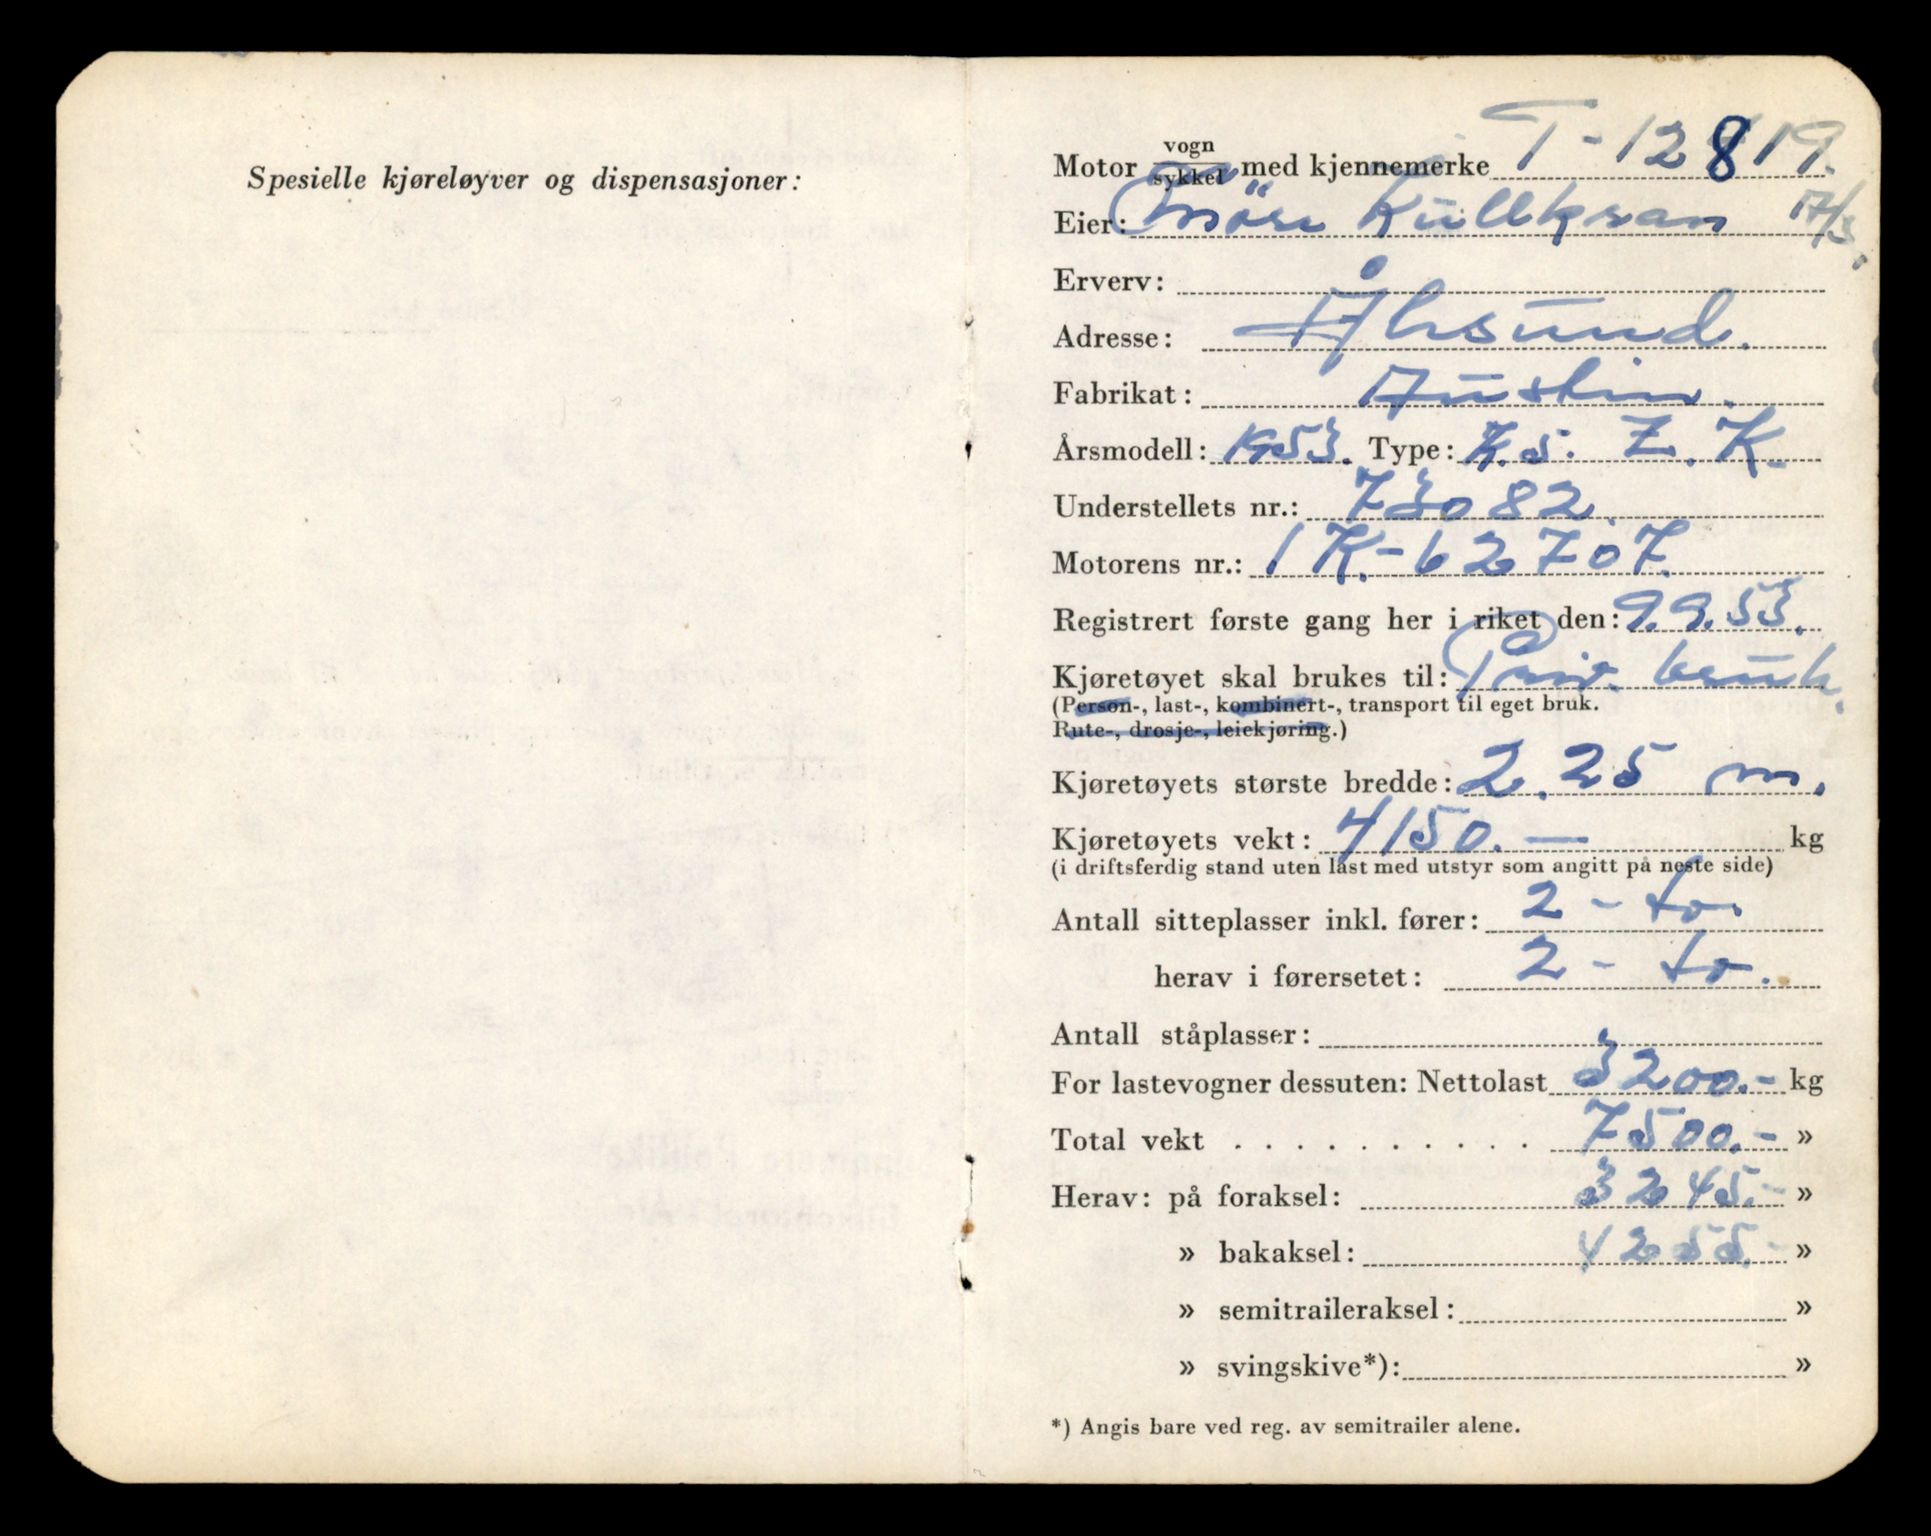 Spesielle kjøreløyver og dispensasjoner:
Motor vogn/sykkel med kjennemerke T-12819.
Eier: Møre Kullkran A/S.
Erverv:
Adresse: Ålesund.
Fabrikat: Austin.
Årsmodell: 1953. Type: K.5. Z.K.
Understellets nr.: 73082.
Motorens nr.: 1K.-62707.
Registrert første gang her i riket den: 9.9.53.
Kjøretøyet skal brukes til: Priv. bruk.
(Person-, last-, kombinert-, transport til eget bruk.
Rute-, drosje-, leiekjøring.)
Kjøretøyets største bredde: 2.25 m.
Kjøretøyets vekt: 4150.— kg
(i driftsferdig stand uten last med utstyr som angitt på neste side)
Antall sitteplasser inkl. fører: 2 - to.
herav i førersetet: 2 - to.
Antall ståplasser:
For lastevogner dessuten: Nettolast 3200.- kg
Total vekt . . . . . . . . . . 7500.- »
Herav: på foraksel: 3245.- »
» bakaksel: 4255.- »
» semitraileraksel: »
» svingskive*): »
*) Angis bare ved reg. av semitrailer alene.